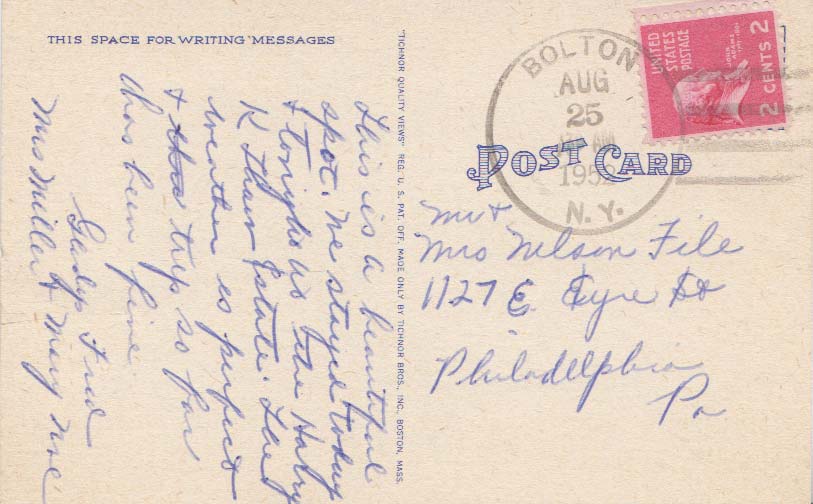 THIS SPACE FOR WRITING MESSAGES
This is a beautiful
spot. We stayed today
& the Harry
K Thaw Estate. The
weather is perfect
& trip so far
has been fine
Gladys Fred
Mrs Miller & Mary
"TICHNOR QUALITY VIEWS" REG. U. S. PAT. OFF. MADE ONLY BY TICHNOR BROS., INC., BOSTON, MASS.
BOLTON
AUG
25
AM
1952
N. Y.
UNITED
STATES
POSTAGE
JOHN
ADAMS
2 CENTS 2
POST CARD
Mr &
Mrs Nelson File
1127 E. Eyre St
Philadelphia
Pa